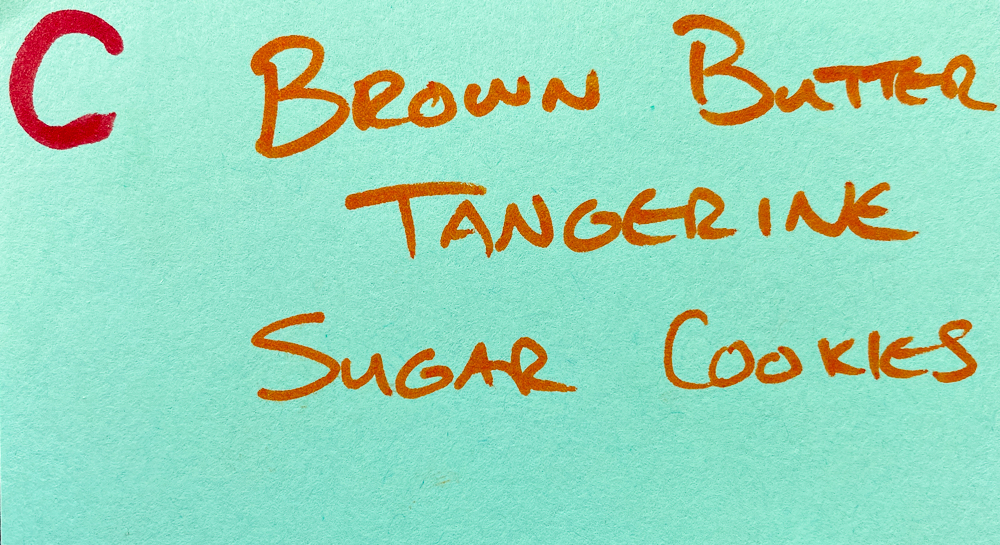 C
BROWN BUTTER
TANGERINE
SUGAR COOKIES